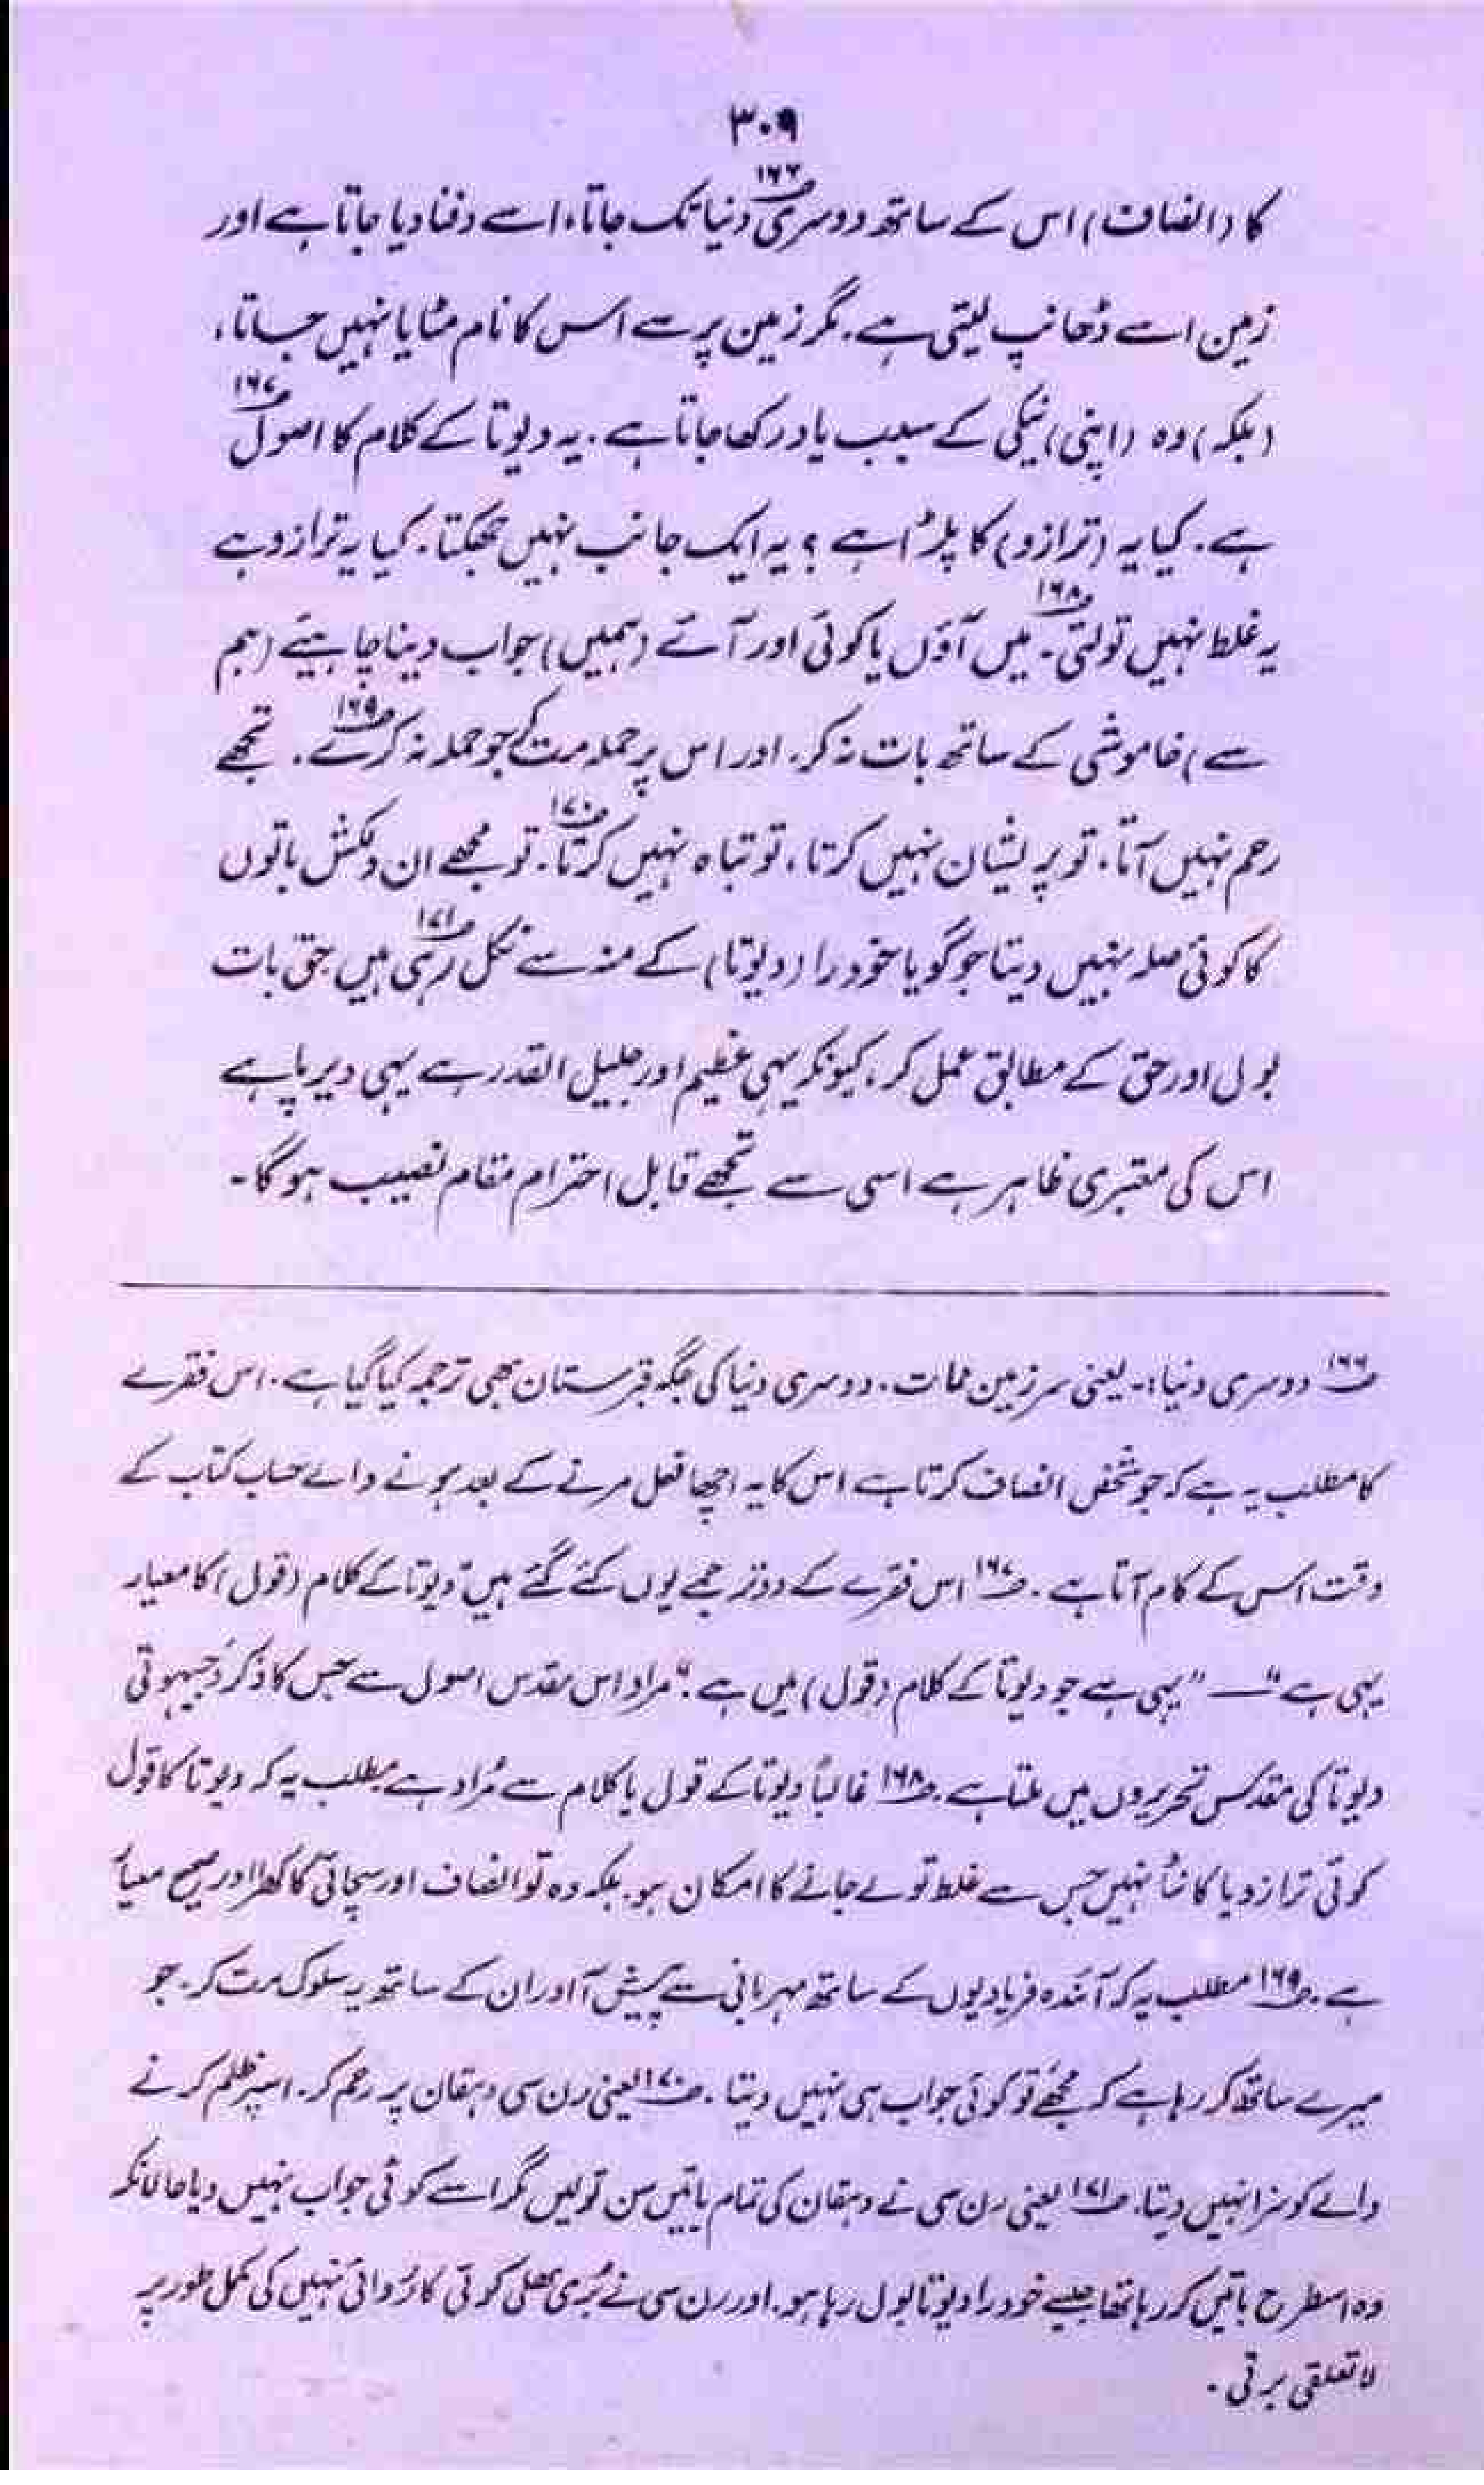 ۳۰۹
کا (انصاف) اس کے ساتھ دوسری۱۶۶ دنیا تک جاتا، اسے دفنا دیا جاتا ہے اور
زمین اسے ڈھانپ لیتی ہے۔ مگر زمین پر سے اس کا نام مٹایا نہیں جاتا،
(بلکہ) وہ (اپنی) نیکی کے سبب یاد رکھا جاتا ہے۔ یہ دیوتا کے کلام کا اصول۱۶۷
ہے۔ کیا یہ (ترازو) کا پلڑا ہے؟ یہ ایک جانب نہیں جھکتا۔ کیا یہ ترازو ہے
یہ غلط نہیں تولتی۱۶۸۔ میں آؤں یا کوئی اور آئے (ہمیں) جواب دینا چاہیئے (ہم
سے) خاموشی کے ساتھ بات نہ کر۔ اور اس پر حملہ مت کر جو حملہ نہ کرے۱۶۹۔ تجھے
رحم نہیں آتا۔ تو پریشان نہیں کرتا، تو تباہ نہیں کرتا۱۷۰۔ تو مجھے ان دلکش باتوں
کا کوئی صلہ نہیں دیتا جو گویا خود را (دیوتا) کے منہ سے نکل رہی۱۷۱ ہیں حق بات
بول اور حق کے مطابق عمل کر، کیونکہ یہی عظیم اور جلیل القدر ہے یہی دیرپا ہے
اس کی معتبری ظاہر ہے اسی سے تجھے قابل احترام مقام نصیب ہو گا۔
۱۶۶ دوسری دنیا:۔ یعنی سرزمین ممات۔ دوسری دنیا کی جگہ قبرستان بھی ترجمہ کیا گیا ہے۔ اس فقرے
کا مطلب یہ ہے کہ جو شخص انصاف کرتا ہے اس کا یہ اچھا فعل مرنے کے بعد ہونے والے حساب کتاب کے
وقت اس کے کام آتا ہے۔ ۱۶۷ اس فقرے کے دو ترجمے یوں کئے گئے ہیں "دیوتا کے کلام (قول) کا معیار
یہی ہے" — "یہی ہے جو دیوتا کے کلام (قول) میں ہے۔" مراد اس مقدس اصول سے جس کا ذکر دجیہوتی
دیوتا کی مقدس تحریروں میں ملتا ہے۔ ۱۶۸ غالباً دیوتا کے قول یا کلام سے مُراد ہے مطلب یہ کہ دیوتا کا قول
کوئی ترازو یا کانٹا نہیں جس سے غلط تولے جانے کا امکان ہو۔ بلکہ وہ تو انصاف اور سچائی کا کھرا اور صحیح معیار
ہے۔ ۱۶۹ مطلب یہ کہ آئندہ فریادیوں کے ساتھ مہربانی سے پیش آ اور ان کے ساتھ یہ سلوک مت کر۔ جو
میرے ساتھ کر رہا ہے کہ مجھے تو کوئی جواب ہی نہیں دیتا۔ ۱۷۰ یعنی رن سی دہقان پر رحم کر۔ اسپر ظلم کرنے
والے کو سزا نہیں دیتا۔ ۱۷۱ یعنی رن سی نے دہقان کی تمام باتیں سن تو لیں مگر اسے کوئی جواب نہیں دیا حالانکہ
وہ اسطرح باتیں کر رہا تھا جیسے خود را دیوتا بول رہا ہو۔ اور رن سی نے بُری بھلی کوئی کارروائی نہیں کی مکمل طور پر
لا تعلقی برتی۔